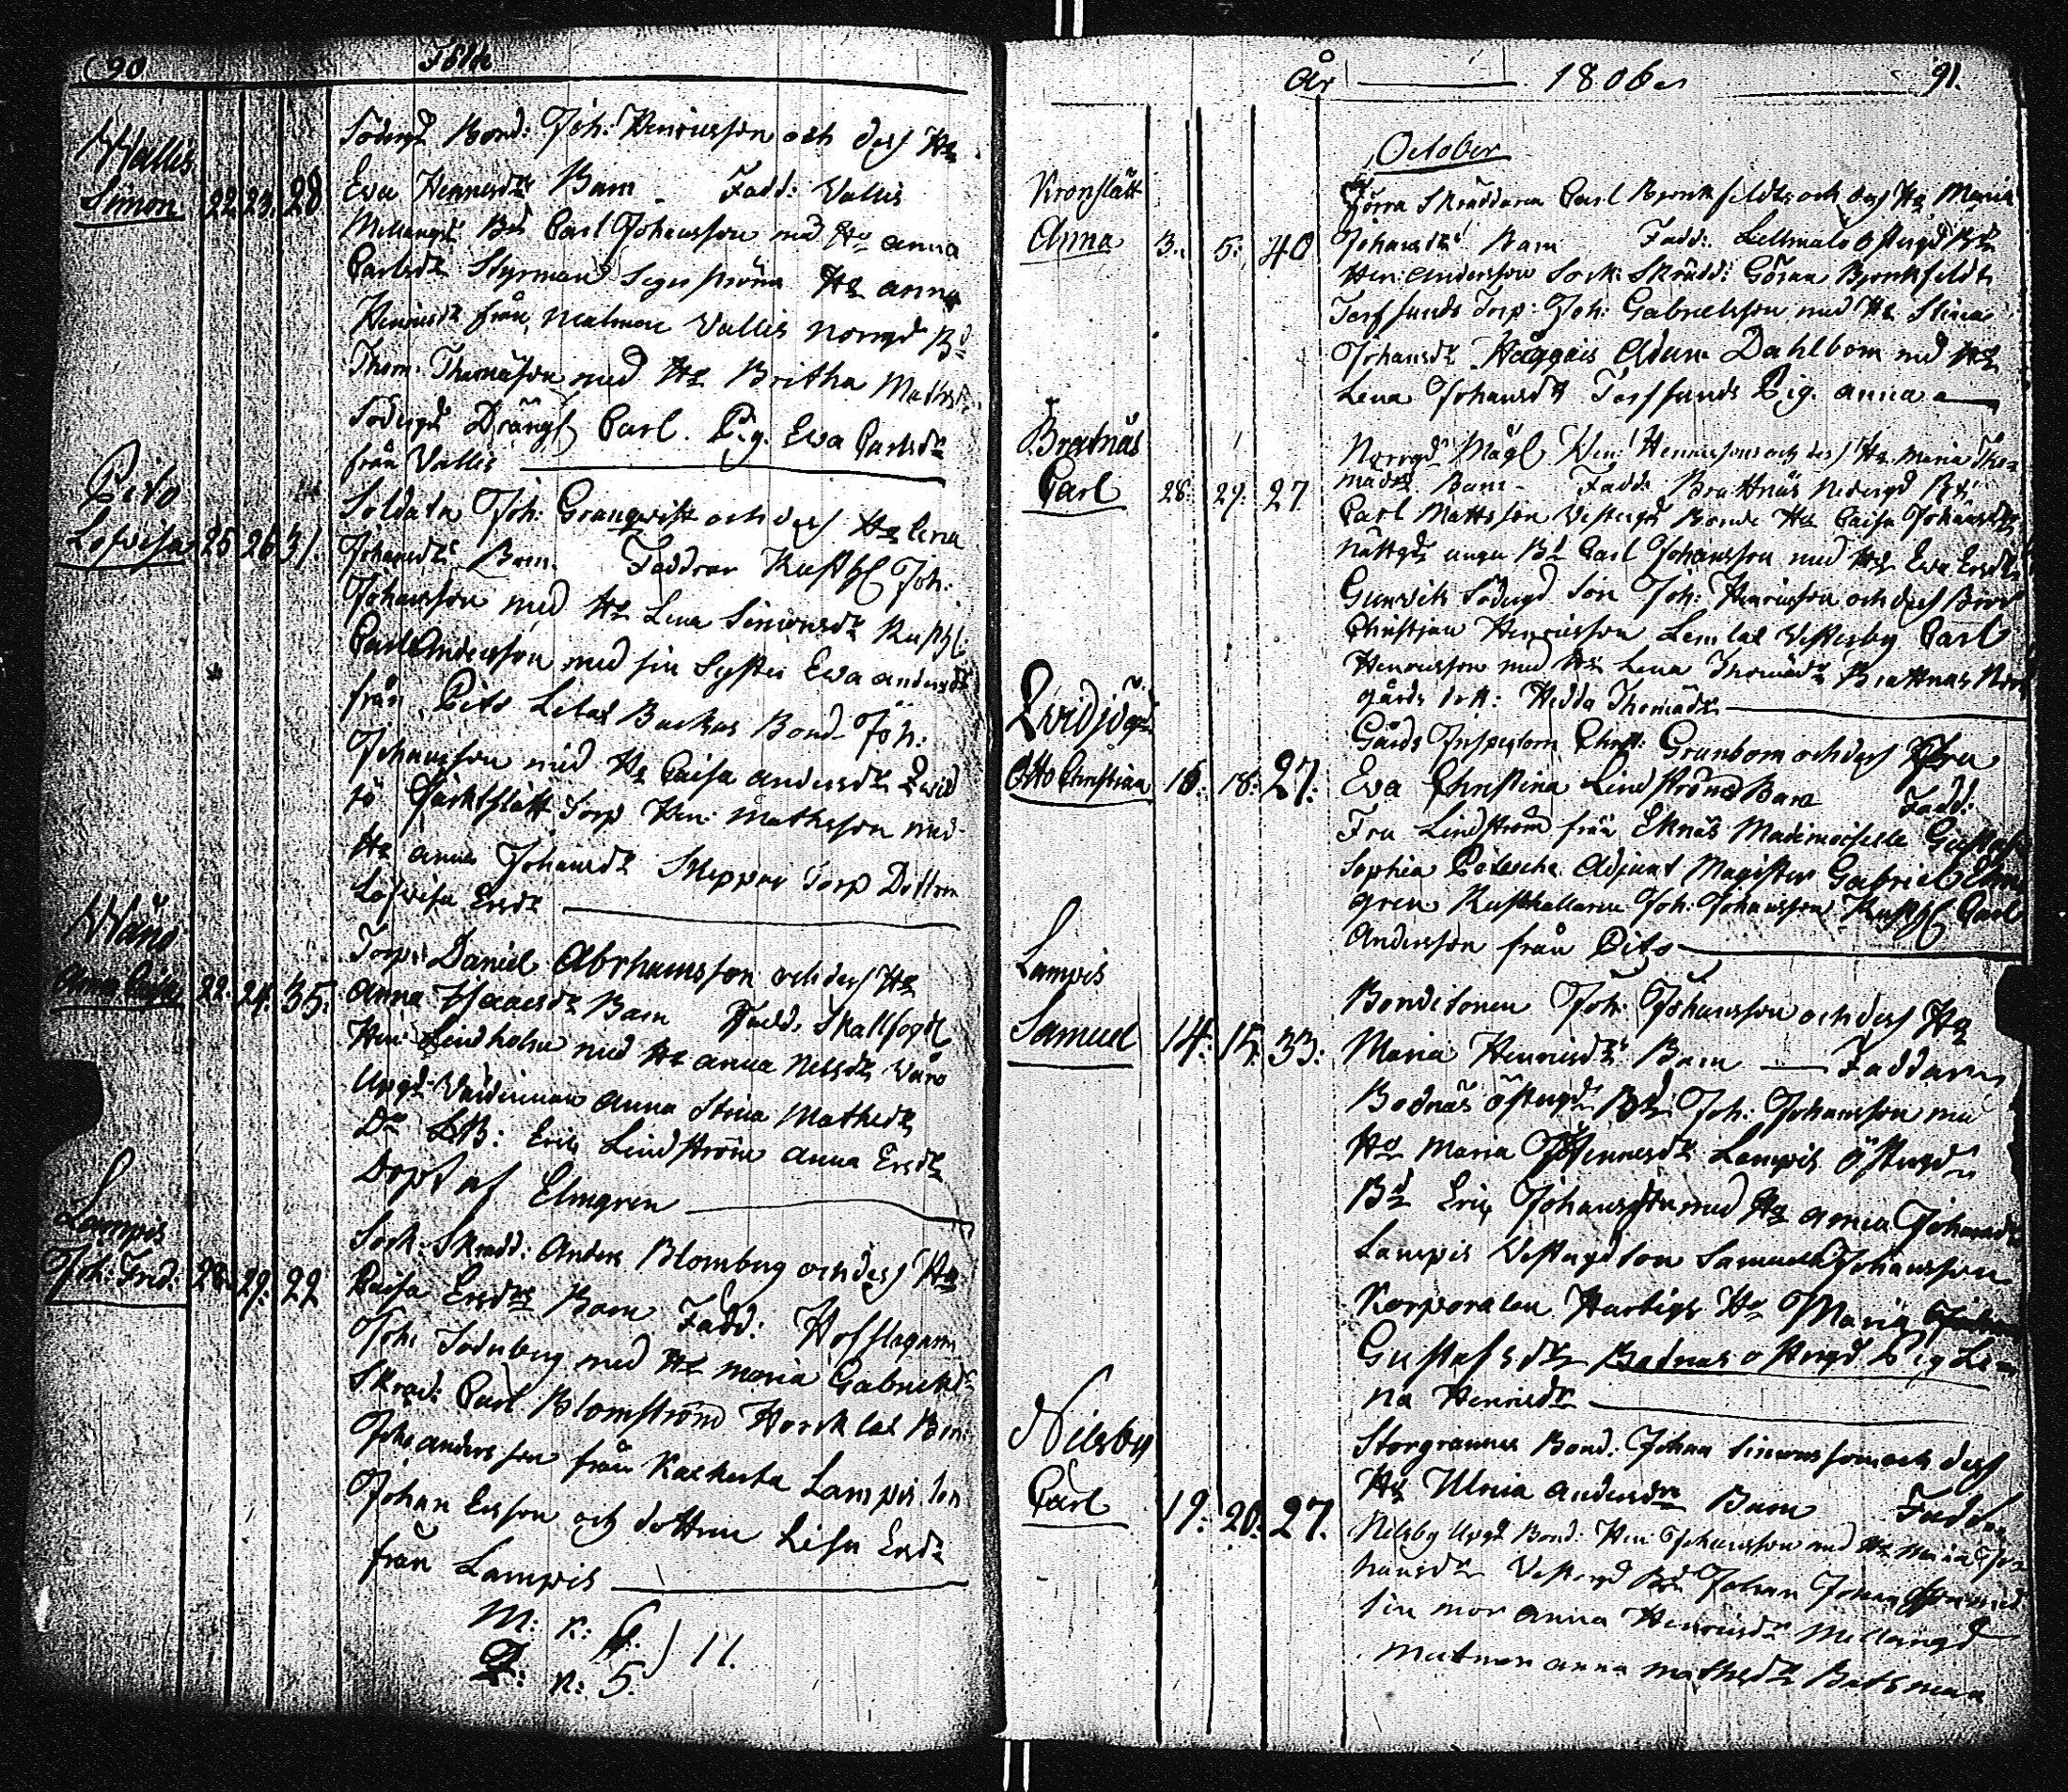 90 Född
Wallis Söderg: Bond: Joh: Henricsson och dess H:
Simon 22. 23. 28 Eva Henricsdr Barn Fadd: Vallis
Mellangd Bd Carl Johansson med H: Anna
Carlsdr Styrman Segerströms H: Anna
Henricsdr från Malmen Vallis Norrgd Bd
Thom: Thomasson med H: Britha Mathsdr
Södergd Dräng Carl. Pig. Eva Carlsdr
från Vallis
Pito Soldata Joh: Granqvist och dess H: Lena
Lovisa 25 26 31. Johansdr Barn. Faddrar Rusth: Joh:
Johansson med H: Lena Simonsdr Rusth:
Carl Andersson med sin Syster Eva Andersdr
från Pito Lillas Backas Bond Joh:
Johansson med H: Caisa Andersdr Qvid
jö Torp Hen: Mathsson med
H: Anna Johansdr Skeppar Torp Dottren
Lovisa Ersdr
Wånö Torp: Daniel Abrhamsson och dess H:
Anna Caisa 22. 24. 35. Anna Isaacsdr Barn Fadd: Skallfogd
Hen: Lindholm med H: Anna Nelsdr Vånö
Uppgd Värdinnan Anna Stina Mathsdr
Do Eric Lindström Anna Ersdr
Döpt af Elmgren
Lampis Sock: Skradd: Anders Blomberg och dess H:
Joh: Fred: 28. 29. 22 Caisa Ersdrs Barn Fadd: Hofslagarn
Joh: Söderberg med H: Maria Gabrielsdr
Skradd: Carl Blomström Horsklal
Joh: Andersson från Kackerta Lampis son
Johan Ersson och dottren Lisa Ersdr
från Lampis
M: k: 6.
Q: k: 5. } 11.
År 1806 91.
October
Kronslätt Förra Skräddaren Carl Bjerckfeldts och dess H: Maria
Anna 3. 5. 40 Johansdrs Barn Fadd: Lellmalo Östergd Bd
Hen: Andersson Sock: Skrädd: Göran Bjerckfeldt
Torfsunds Torp: Joh: Gabrielsson med H: Stina
Johansdr Häggais Adam Dahlbom med H:
Lena Johansdr Torfsunds Pig. Anna
Bratnäs Norrgd Måg Hen: Henricsson och dess H: Maria Tho
Carl 28. 29. 27 madr Barn Fadd: Brattnäs Nedergd Bd:
Carl Mattsson Vestergd Bonde H: Caisa Johansdr
Nättgd unga Bd Carl Johansson med H: Eva Ersdr
Gunvik Södergd Son Joh: Henricsson och dess Bror
Christjan Henricsson Lemlal Vesterby Carl
Henricsson med H: Lena Thomasdr Brattnas Norr
gårds dott: Hedda Thomasdr
Qvidjogd Gårds Inspectorn Christ: Granbom och dess Fru
Otto Christian 16. 18. 27. Eva Christina Lindströms Barn Fadd:
Fru Lindström från Eknäs Mademoiselle Gustafa
Sophia Adjunct Magister Gabriel Elm
gren Rusthallaren Joh: Johansson Rusth: Carl
Andersson från Pito
Lampis Bondesonen Joh: Johansson och dess H:
Samuel 14. 15. 33. Maria Henricsdr Barn Faddare
Bodnäs Östergd Bd: Joh: Johansson med
H: Maria Hinnersdr Lampis Östergd
Bd Eric Johansson med H: Anna Johansdr
Lampis Vestergd son Samuel Johansson
Korporalen Hartigs H: Maria
Gustafsdr Bodnas Östergd Pig Le
na Henricsdr
Nilsby Storgrannes Bond: Johan Simonsson och dess
Carl 19. 20. 27. H: Ulrica Andersdrs Barn Faddr:
Nilsby Uppgd Bond: Hen: Johansson med H: Maria Jo
hansdr Vestergd Bd Johan Johansson med
sin mor Anna Henricsdr Mellangd
Matmor Anna Mathsdr Båtsman